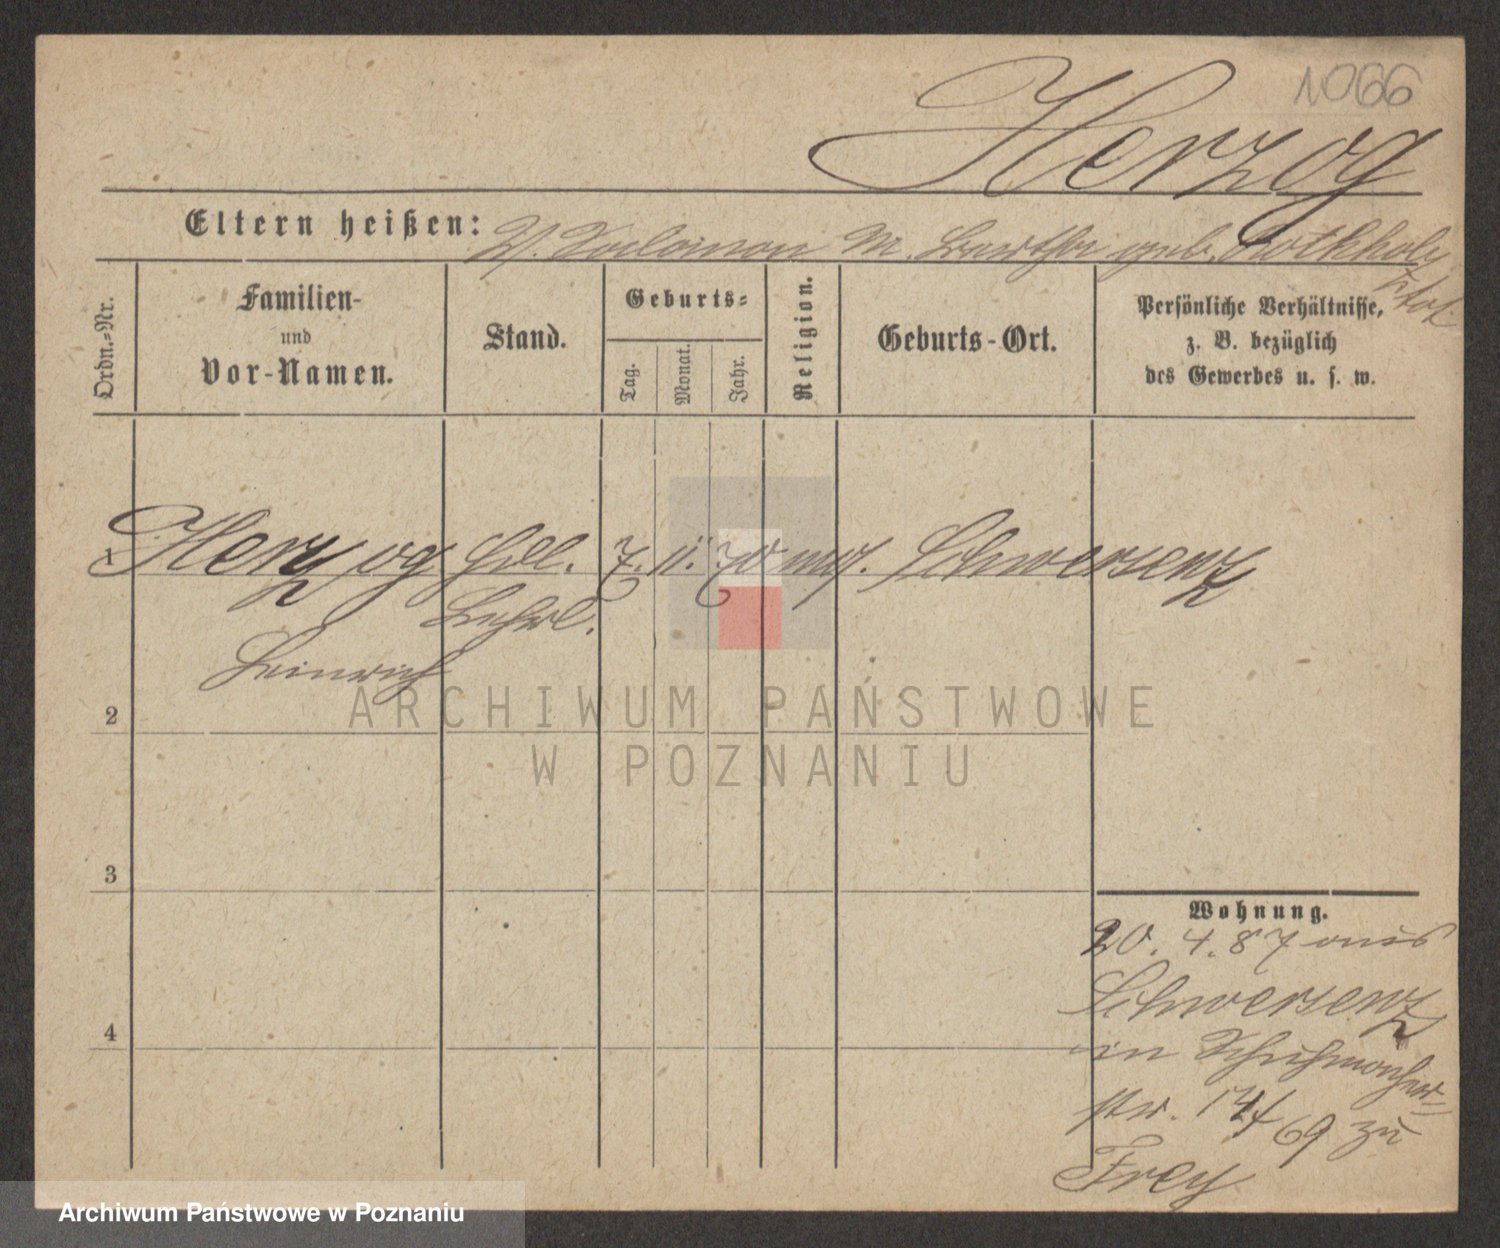 1066
Herzog
Eltern heißen: V. Salomon M. Bertha geb. Rothholz
Ordn.-Nr.
Familien-
und
Vor-Namen.
Stand.
Geburts-
Tag.
Monat.
Jahr.
Religion.
Geburts-Ort.
Persönliche Verhältnisse,
z. B. bezüglich
des Gewerbes u. s. w.
1 Herzog Hdl. 7. 11. 70 mos. Schwersenz
Lehrl.
Heinrich
2
3
4
Wohnung.
20. 4. 87 aus
Schwersenz
in Schuhmacher-
str. 14/69 zu
Frey
ARCHIWUM PAŃSTWOWE
W POZNANIU
Archiwum Państwowe w Poznaniu